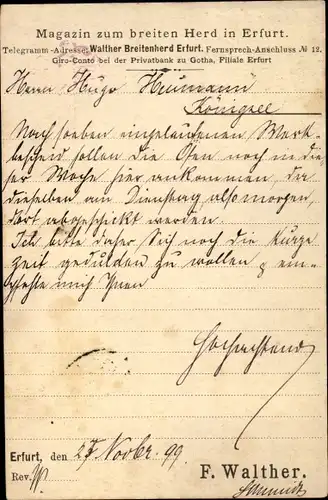 Magazin zum breiten Herd in Erfurt.
Telegramm-Adresse: Walther Breitenherd Erfurt. Fernsprech-Anschluss № 12.
Giro-Conto bei der Privatbank zu Gotha, Filiale Erfurt
Herrn Hugo Heumann
Königsee
Nach soeben eingelaufenen Werk-
bescheid sollen die Öfen noch in die-
ser Woche hier ankommen, da
dieselben am Dienstag, also morgen,
dort abgeschickt werden.
Ich bitte daher Sich noch die kurze
Zeit gedulden zu wollen & em-
pfehle mich Ihnen
Hochachtend
Erfurt, den 27 Novbr. 99.
Rev.
F. Walther.